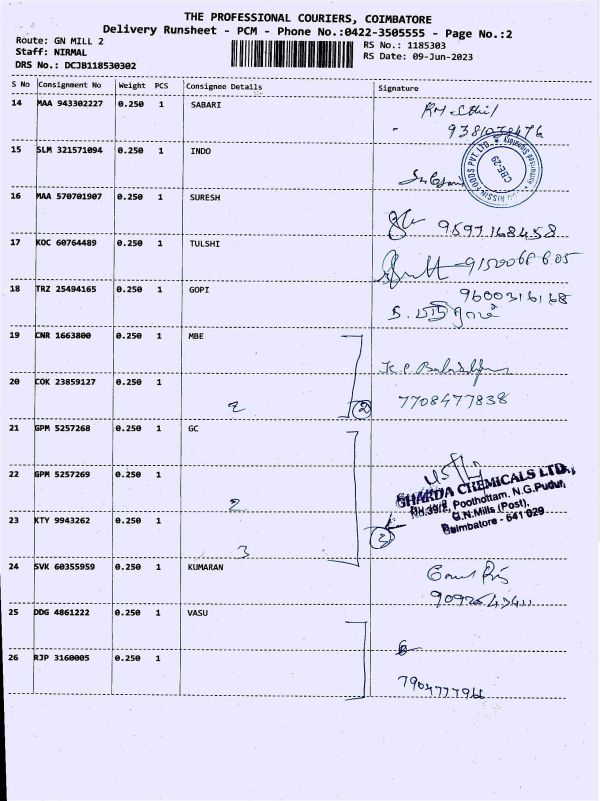 THE PROFESSIONAL COURIERS, COIMBATORE
Delivery Runsheet - PCM - Phone No.:0422-3505555 - Page No.:2
Route: GN MILL 2
RS No.: 1185303
Staff: NIRMAL
RS Date: 09-Jun-2023
DRS No.: DCJB118530302
S No Consignment No Weight PCS Consignee Details Signature
14 MAA 943302227 0.250 1 SABARI
15 SLM 321571094 0.250 1 INDO
CBE-29
16 MAA 570701907 0.250 1 SURESH
9597168458
17 KOC 60764489 0.250 1 TULSHI
18 TRZ 25494165 0.250 1 GOPI
9600316168
19 CNR 1663800 0.250 1 MBE
20 COK 23859127 0.250 1
2 2
7708477838
21 GPM 5257268 0.250 1 GC
22 GPM 5257269 0.250 1
2
GHARDA CHEMICALS LTD.,
Poothottam, N.G.Pudur,
G.N.Mills (Post),
Coimbatore - 641 029
23 KTY 9943262 0.250 1
3
24 SVK 60355959 0.250 1 KUMARAN
25 DDG 4861222 0.250 1 VASU
26 RJP 3160005 0.250 1